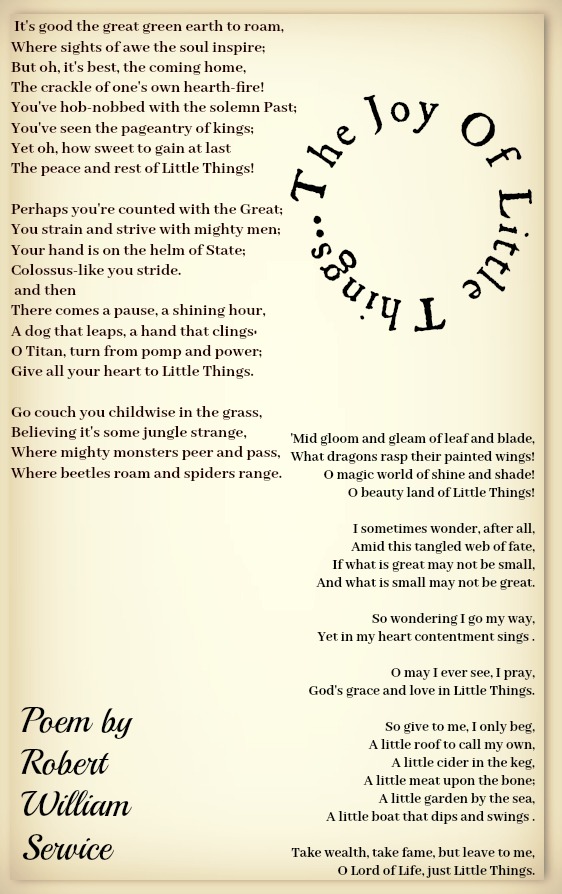 It's good the great green earth to roam,
Where sights of awe the soul inspire;
But oh, it's best, the coming home,
The crackle of one's own hearth-fire!
You've hob-nobbed with the solemn Past;
You've seen the pageantry of kings;
Yet oh, how sweet to gain at last
The peace and rest of Little Things!

Perhaps you're counted with the Great;
You strain and strive with mighty men;
Your hand is on the helm of State;
Colossus-like you stride.
and then
There comes a pause, a shining hour,
A dog that leaps, a hand that clings·
O Titan, turn from pomp and power;
Give all your heart to Little Things.

Go couch you childwise in the grass,
Believing it's some jungle strange,
Where mighty monsters peer and pass,
Where beetles roam and spiders range.

The Joy Of Little Things..

'Mid gloom and gleam of leaf and blade,
What dragons rasp their painted wings!
O magic world of shine and shade!
O beauty land of Little Things!

I sometimes wonder, after all,
Amid this tangled web of fate,
If what is great may not be small,
And what is small may not be great.

So wondering I go my way,
Yet in my heart contentment sings .

O may I ever see, I pray,
God's grace and love in Little Things.

So give to me, I only beg,
A little roof to call my own,
A little cider in the keg,
A little meat upon the bone;
A little garden by the sea,
A little boat that dips and swings .

Take wealth, take fame, but leave to me,
O Lord of Life, just Little Things.

Poem by
Robert
William
Service